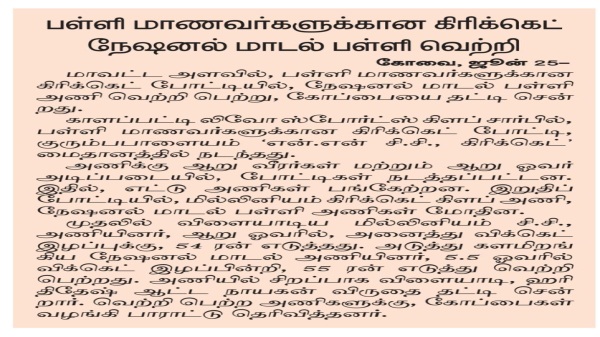 பள்ளி மாணவர்களுக்கான கிரிக்கெட்
நேஷனல் மாடல் பள்ளி வெற்றி
கோவை, ஜூன் 25–
மாவட்ட அளவில், பள்ளி மாணவர்களுக்கான
கிரிக்கெட் போட்டியில், நேஷனல் மாடல் பள்ளி
அணி வெற்றி பெற்று, கோப்பையை தட்டி சென்
றது.
காளப்பட்டி லிவோ ஸ்போர்ட்ஸ் கிளப் சார்பில்,
பள்ளி மாணவர்களுக்கான கிரிக்கெட் போட்டி,
குரும்பபாளையம் ‘என்.என் சி.சி., கிரிக்கெட்’
மைதானத்தில் நடந்தது.
அணிக்கு ஆறு வீரர்கள் மற்றும் ஆறு ஓவர்
அடிப்படையில், போட்டிகள் நடத்தப்பட்டன.
இதில், எட்டு அணிகள் பங்கேற்றன. இறுதிப்
போட்டியில், மில்லினியம் கிரிக்கெட் கிளப் அணி,
நேஷனல் மாடல் பள்ளி அணிகள் மோதின.
முதலில் விளையாடிய மில்லினியம் சி.சி.,
அணியினர், ஆறு ஓவரில், அனைத்து விக்கெட்
இழப்புக்கு, 54 ரன் எடுத்தது. அடுத்து களமிறங்
கிய நேஷனல் மாடல் அணியினர், 5.5 ஓவரில்
விக்கெட் இழப்பின்றி, 55 ரன் எடுத்து வெற்றி
பெற்றது. அணியில் சிறப்பாக விளையாடி, ஹரி
திதேஷ் ஆட்ட நாயகன் விருதை தட்டி சென்
றார். வெற்றி பெற்ற அணிகளுக்கு, கோப்பைகள்
வழங்கி பாராட்டு தெரிவித்தனர்.